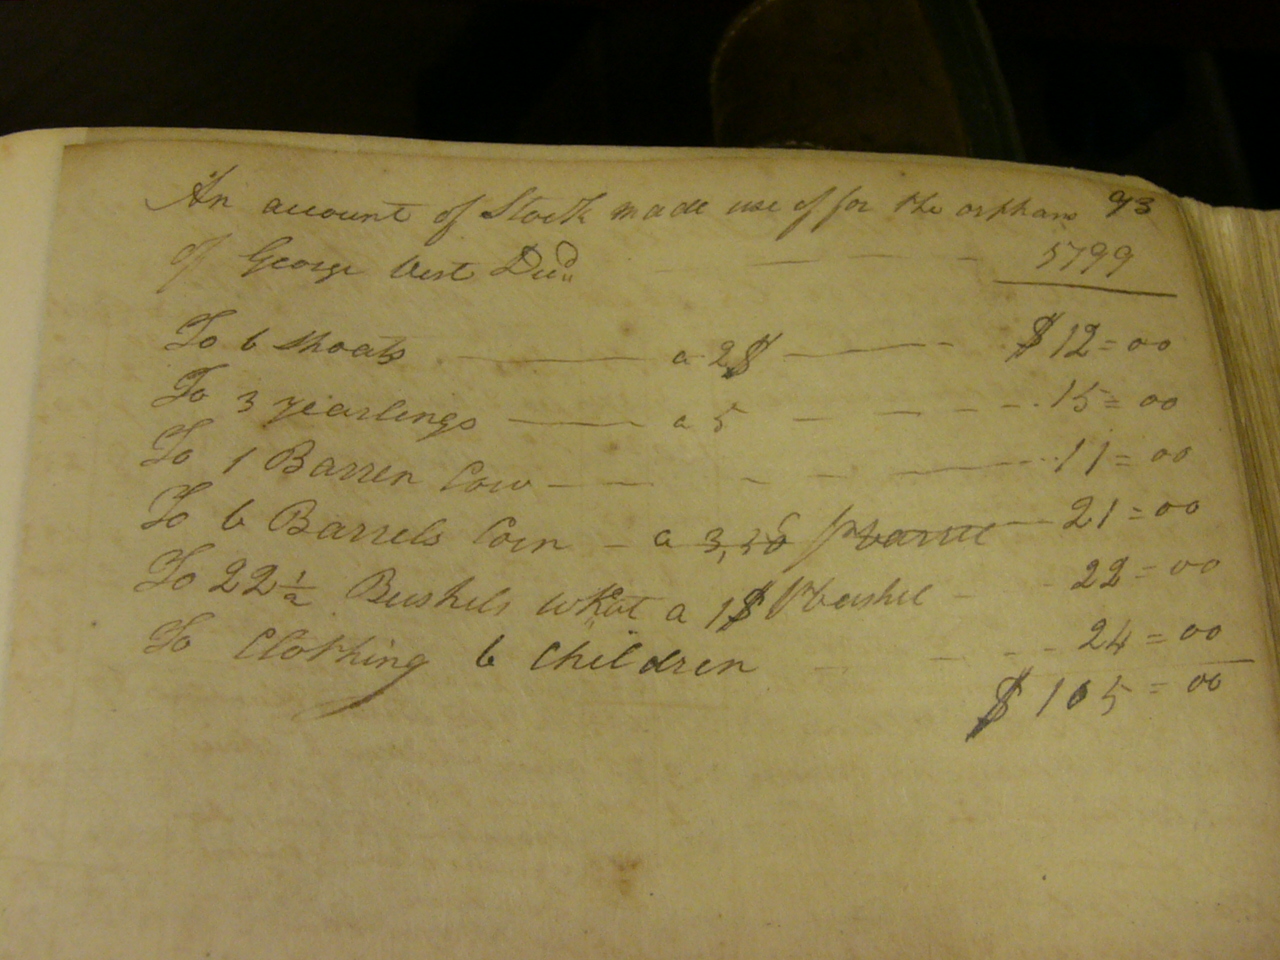 An account of Stock made use of for the orphans 93
of George Vest Decd 5799
To 6 Shoats a 2$ $12=00
To 3 yearlings a 5 15=00
To 1 Barren Cow 11=00
To 6 Barrels Corn a 3,50 pr barrel 21=00
To 22 1/2 Bushels wheat a 1$ pr bushel 22=00
To Clothing 6 Children 24=00
$105=00